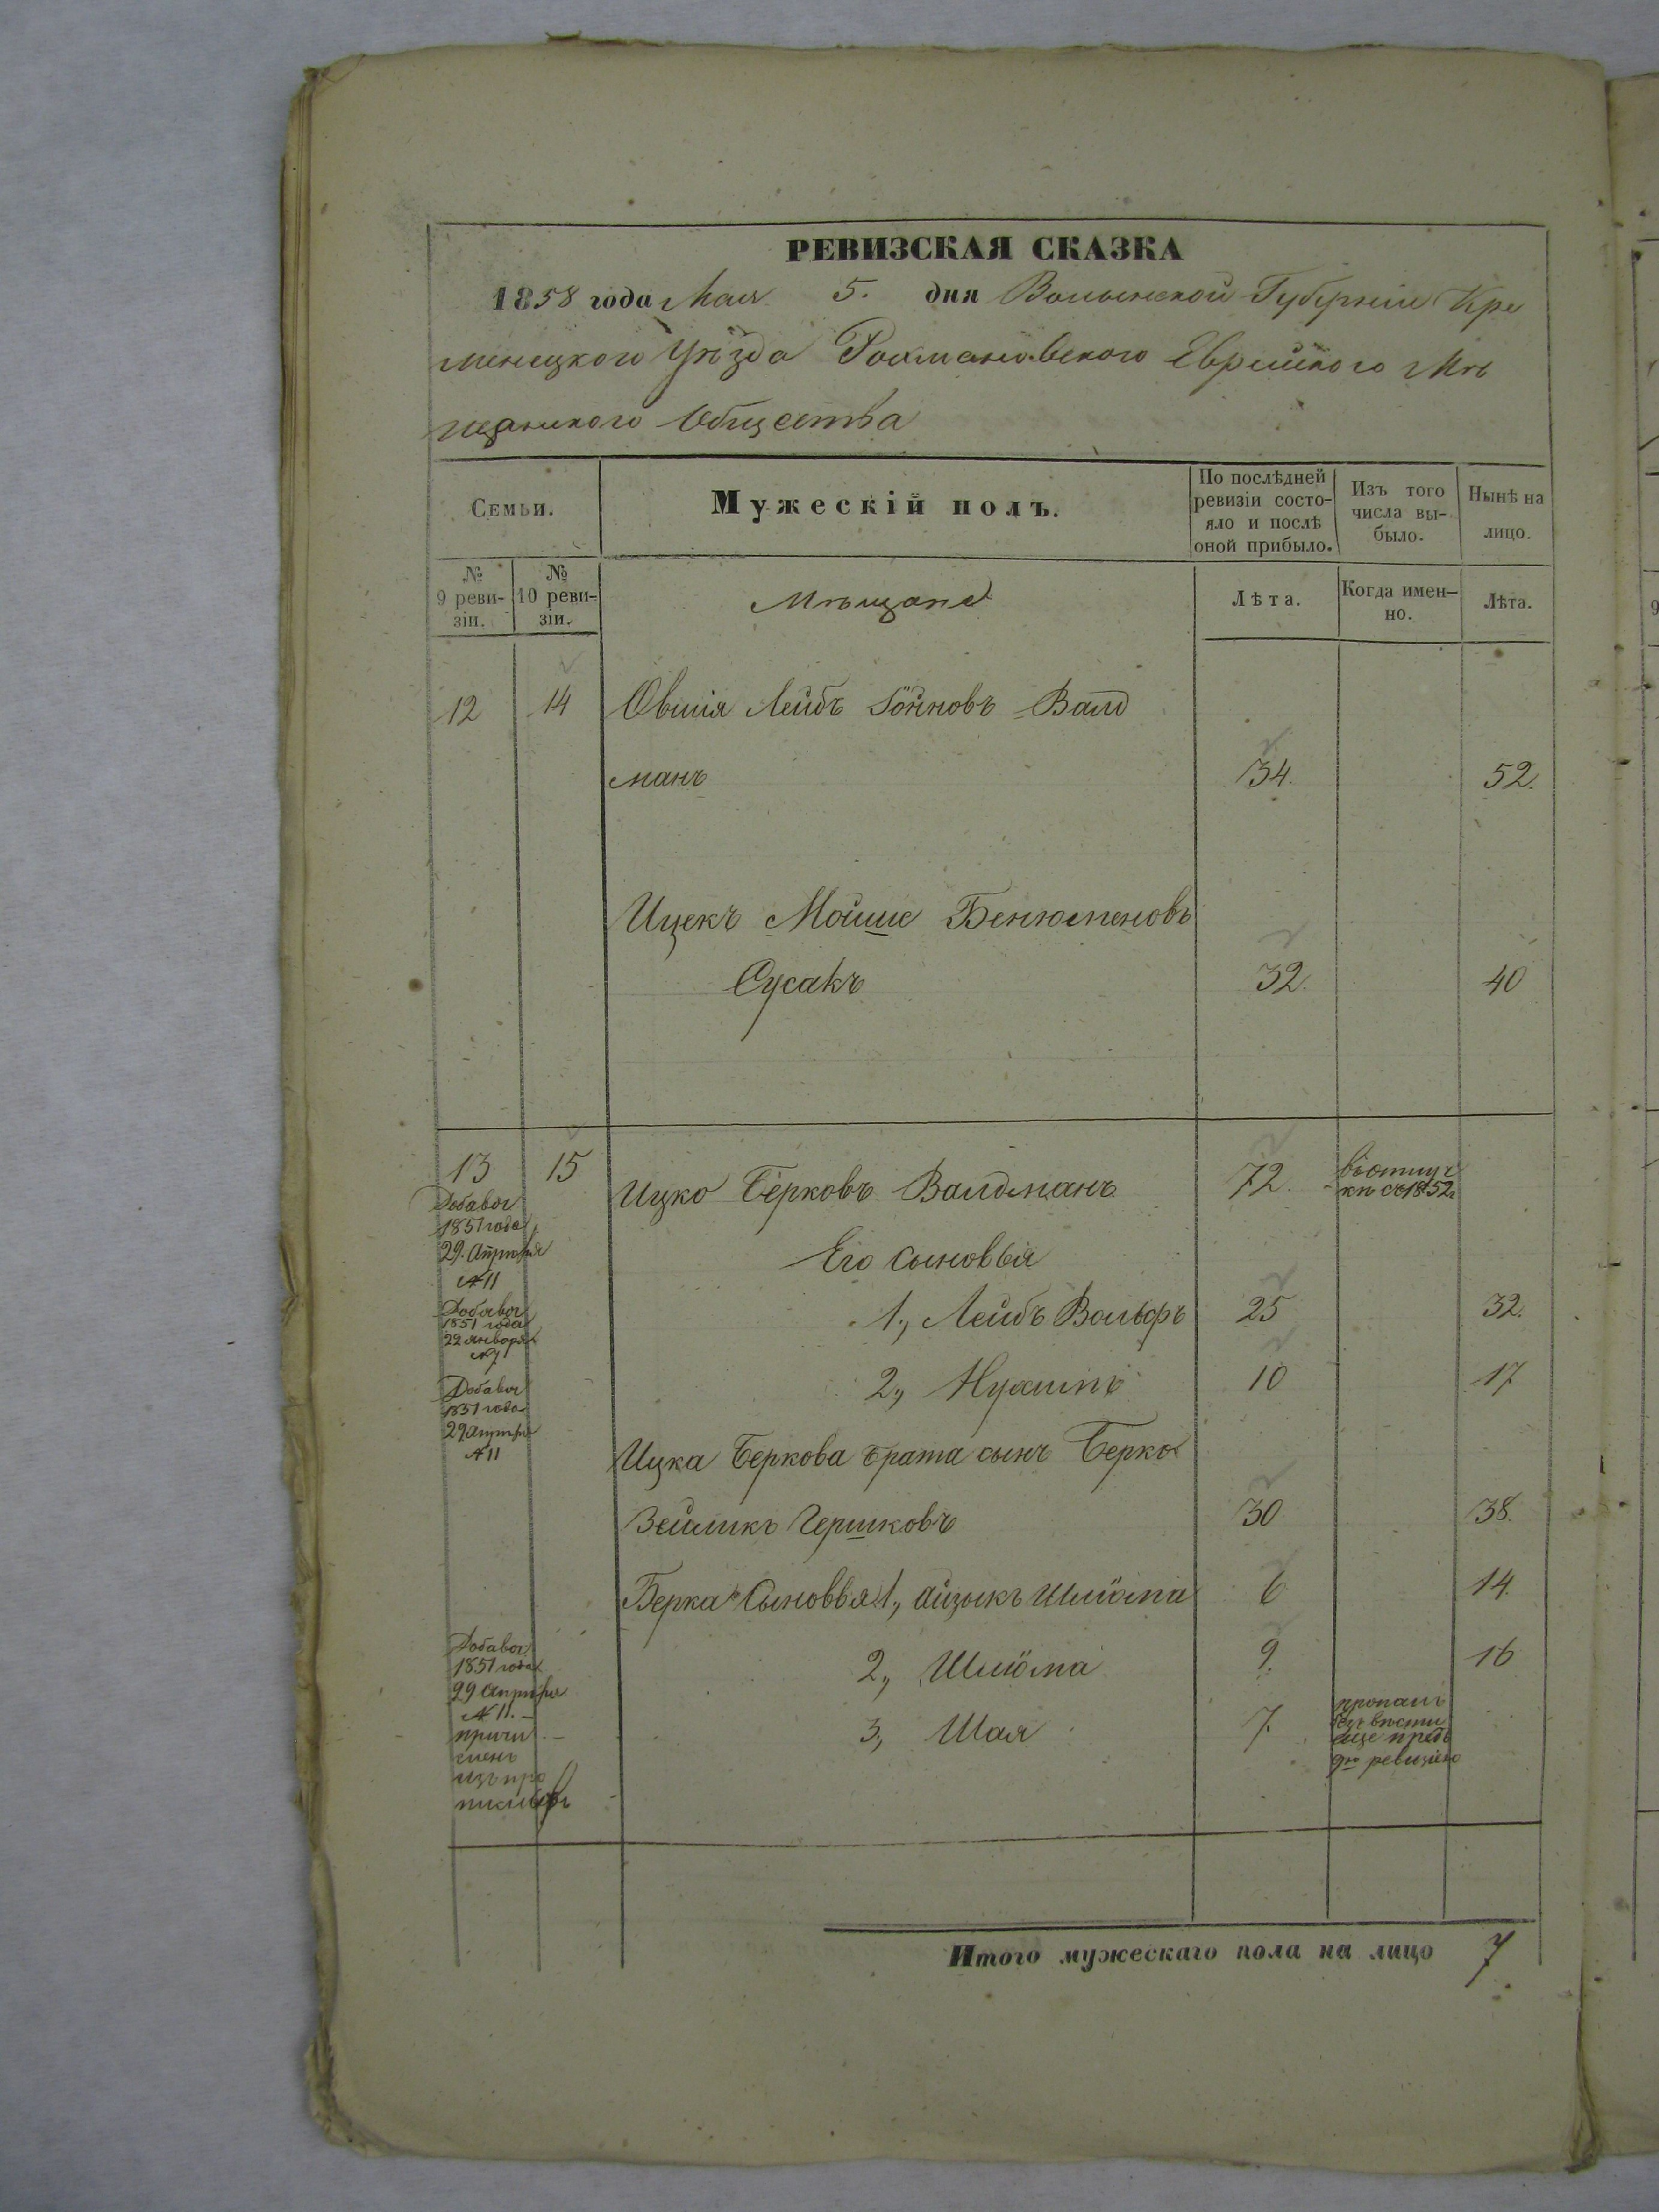 РЕВИЗСКАЯ СКАЗКА
1858 года Мая 5. дня Волынской Губерніи Кре
менецкого Уѣзда Рохмановского Еврейского Мѣ
щанского Общества
Семьи.
Мужескій полъ.
По послѣдней ревизіи состо-
яло и послѣ оной прибыло.
Изъ того числа вы-
было.
Нынѣ на лицо.
№ 9 реви-
зіи.
№ 10 реви-
зіи.
Мѣщане
Лѣта.
Когда имен-
но.
Лѣта.
12 14 Овшія Лейбъ Валд
манъ 34. 52.
Ицекъ Мойше Бенюменовъ
Сусакъ 32. 40
13 15 Ицко Берковъ Валдманъ 72. съ 1852
Добавоч
1851 года
29. Апрѣля
№ 11
Его сыновья
Добавоч
1851 года
22 января
№ 7
1., Лейбъ Вольфъ 25 32.
Добавоч
1851 года
29 Апрѣля
№ 11
2., Нухимъ 10 17
Ицка Беркова брата сынъ Берко
Зейликъ Гершковъ 30 38.
Берка Сыновья 1., Айзыкъ Шлёма 6 14.
Добавоч.
1851 года
29 Апрѣля
№ 11.
причи
сленъ
изъ про
2., Шлёма 9. 16
3, Шая 7. пропалъ
безъ вѣсти
еще предъ
9ю ревизіею
Итого мужескаго пола на лицо 7